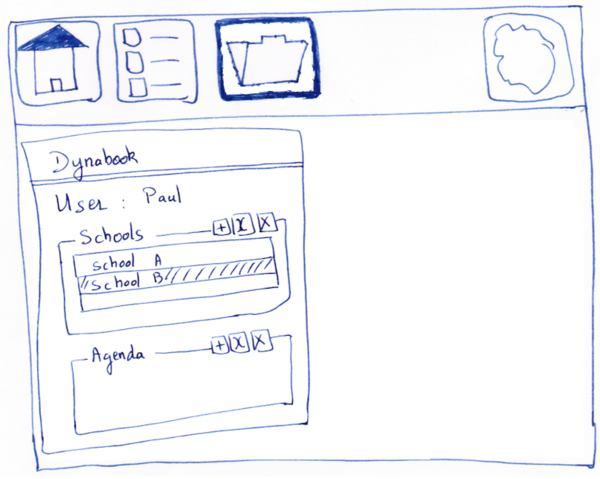 Dynabook
User : Paul
Schools + x X
School A
School B
Agenda + x X